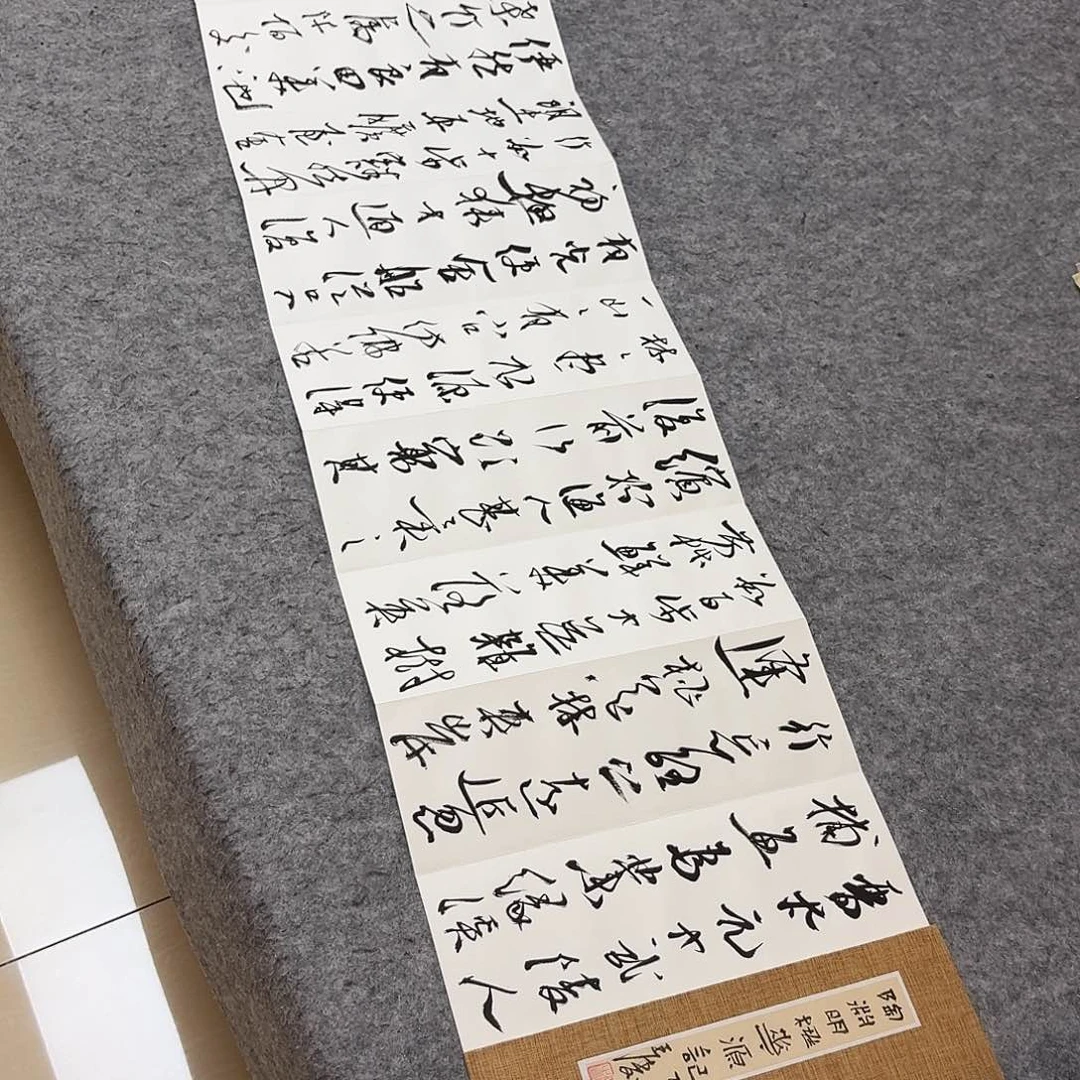 陶淵明桃華源記
晉太元中武陵人
捕魚為業緣溪
行忘路之遠近忽
逢桃花林夾岸
數百步中無雜樹
芳草鮮美落英
繽紛漁人甚異之
復前行欲窮其
林〻盡水源便得
一山〻有小口彷彿若
有光便舍船從口入
初極狹才通人復
行數十步豁然開
朗土地平曠屋舍
儼然有良田美池
桑竹之屬阡陌交